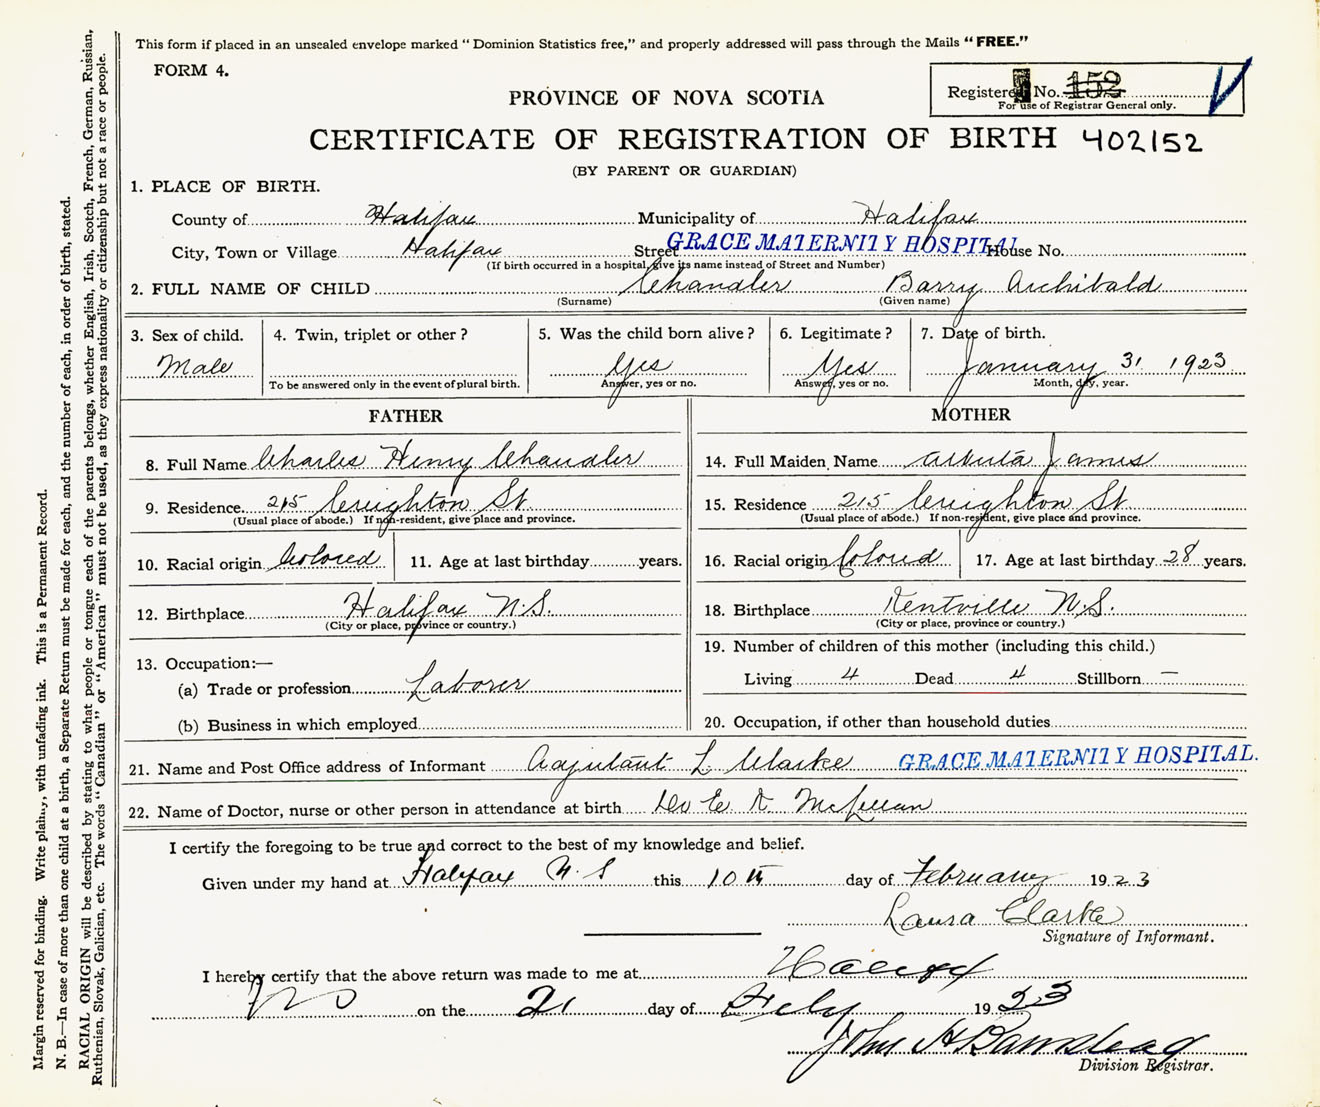 This form if placed in an unsealed envelope marked "Dominion Statistics free," and properly addressed will pass through the Mails "FREE."
FORM 4.
Registered No. 152
For use of Registrar General only.
PROVINCE OF NOVA SCOTIA
CERTIFICATE OF REGISTRATION OF BIRTH 402152
(BY PARENT OR GUARDIAN)
1. PLACE OF BIRTH.
County of Halifax Municipality of Halifax
City, Town or Village Halifax Street GRACE MATERNITY HOSPITAL House No.
(If birth occurred in a hospital, give its name instead of Street and Number)
2. FULL NAME OF CHILD Chandler Barry Archibald
(Surname) (Given name)
3. Sex of child. 4. Twin, triplet or other? 5. Was the child born alive? 6. Legitimate? 7. Date of birth.
Male Yes Yes January 31 1923
To be answered only in the event of plural birth. Answer, yes or no. Answer, yes or no. Month, day, year.
FATHER MOTHER
8. Full Name Charles Henry Chandler 14. Full Maiden Name Alberta James
9. Residence. 215 Creighton St. 15. Residence 215 Creighton St
(Usual place of abode.) If non-resident, give place and province. (Usual place of abode.) If non-resident, give place and province.
10. Racial origin Colored 11. Age at last birthday years. 16. Racial origin Colored 17. Age at last birthday 28 years.
12. Birthplace Halifax N.S. 18. Birthplace Kentville N.S.
(City or place, province or country.) (City or place, province or country.)
13. Occupation:— 19. Number of children of this mother (including this child.)
(a) Trade or profession Laborer Living 4 Dead 4 Stillborn —
(b) Business in which employed 20. Occupation, if other than household duties
21. Name and Post Office address of Informant Adjutant L Clarke GRACE MATERNITY HOSPITAL.
22. Name of Doctor, nurse or other person in attendance at birth Dr E McLellan
I certify the foregoing to be true and correct to the best of my knowledge and belief.
Given under my hand at Halifax N.S this 10th day of February 1923
Laura Clarke
Signature of Informant.
I hereby certify that the above return was made to me at Halifax
NS on the 21 day of Feby 1923
John H Barnstead
Division Registrar.
Margin reserved for binding. Write plainly, with unfading ink. This is a Permanent Record.
N. B.—In case of more than one child at a birth, a Separate Return must be made for each, and the number of each, in order of birth, stated.
RACIAL ORIGIN will be described by stating to what people or tongue each of the parents belongs, whether English, Irish, Scotch, French, German, Russian,
Ruthenian, Slovak, Galician, etc. The words "Canadian" or "American" must not be used, as they express nationality or citizenship but not a race or people.